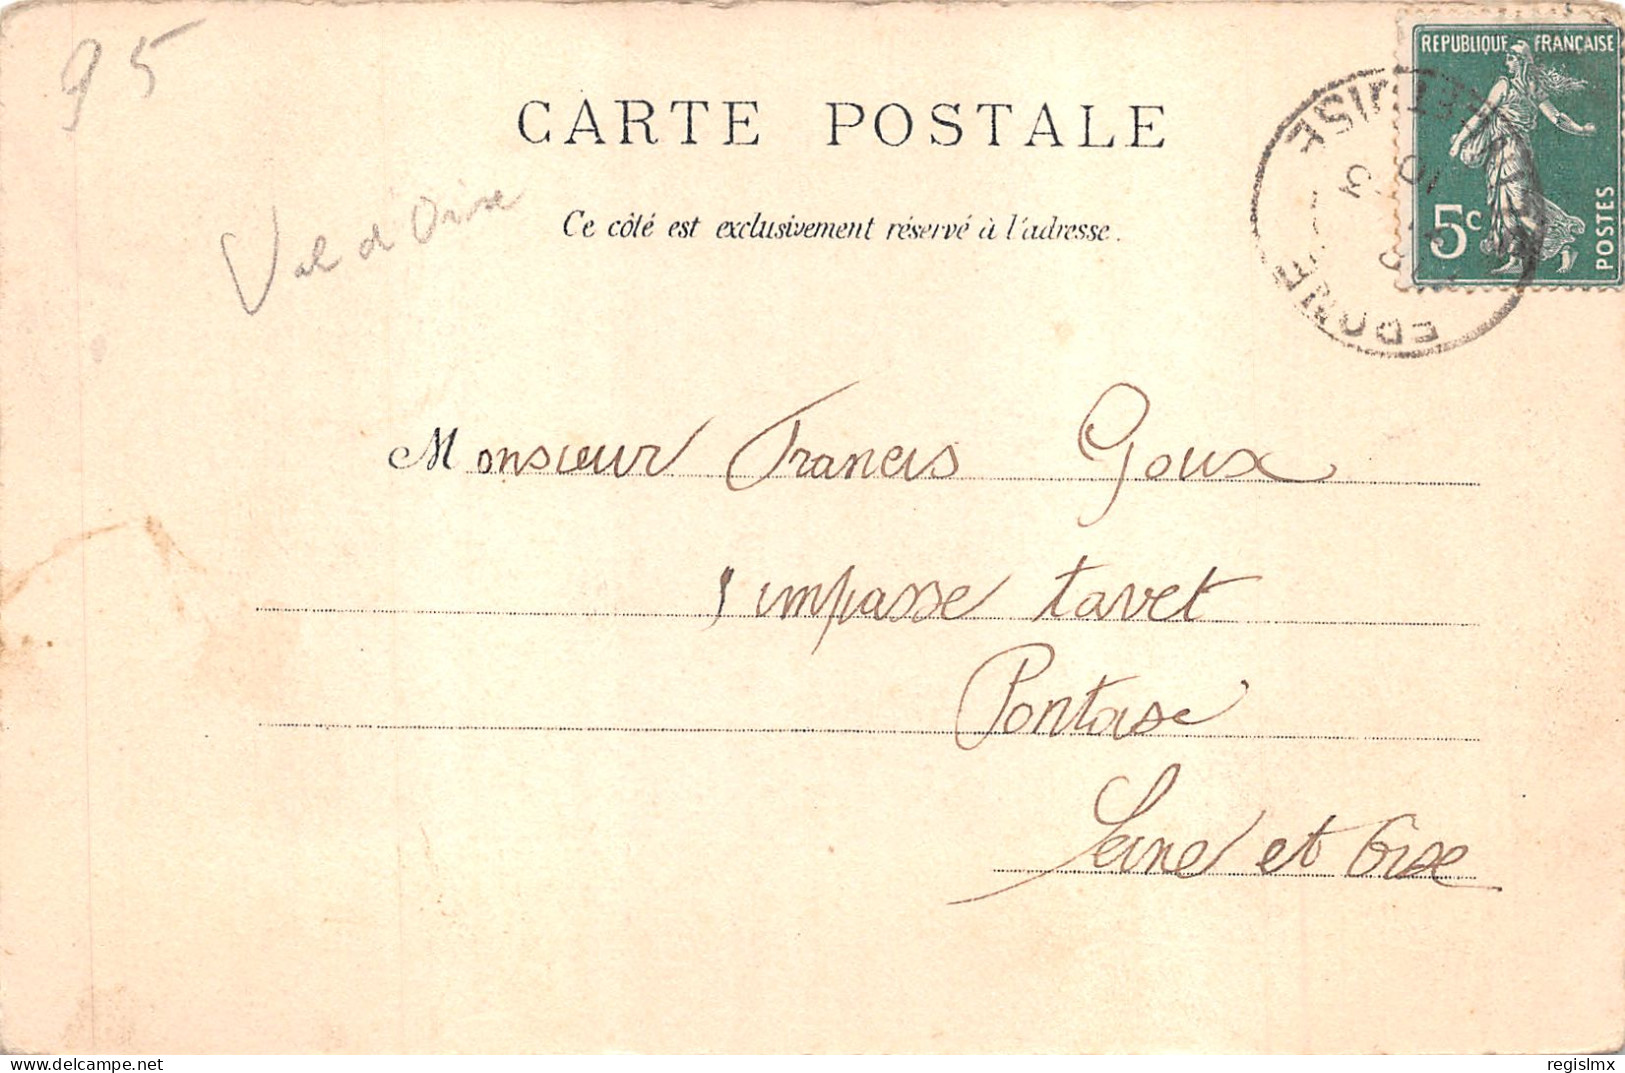 95
Val d'Oise
CARTE POSTALE
Ce côté est exclusivement réservé à l'adresse.
REPUBLIQUE FRANÇAISE
5c
POSTES
Monsieur Francis Goux
impasse tavet
Pontoise
Seine et Oise
delcampe.net
regislmx